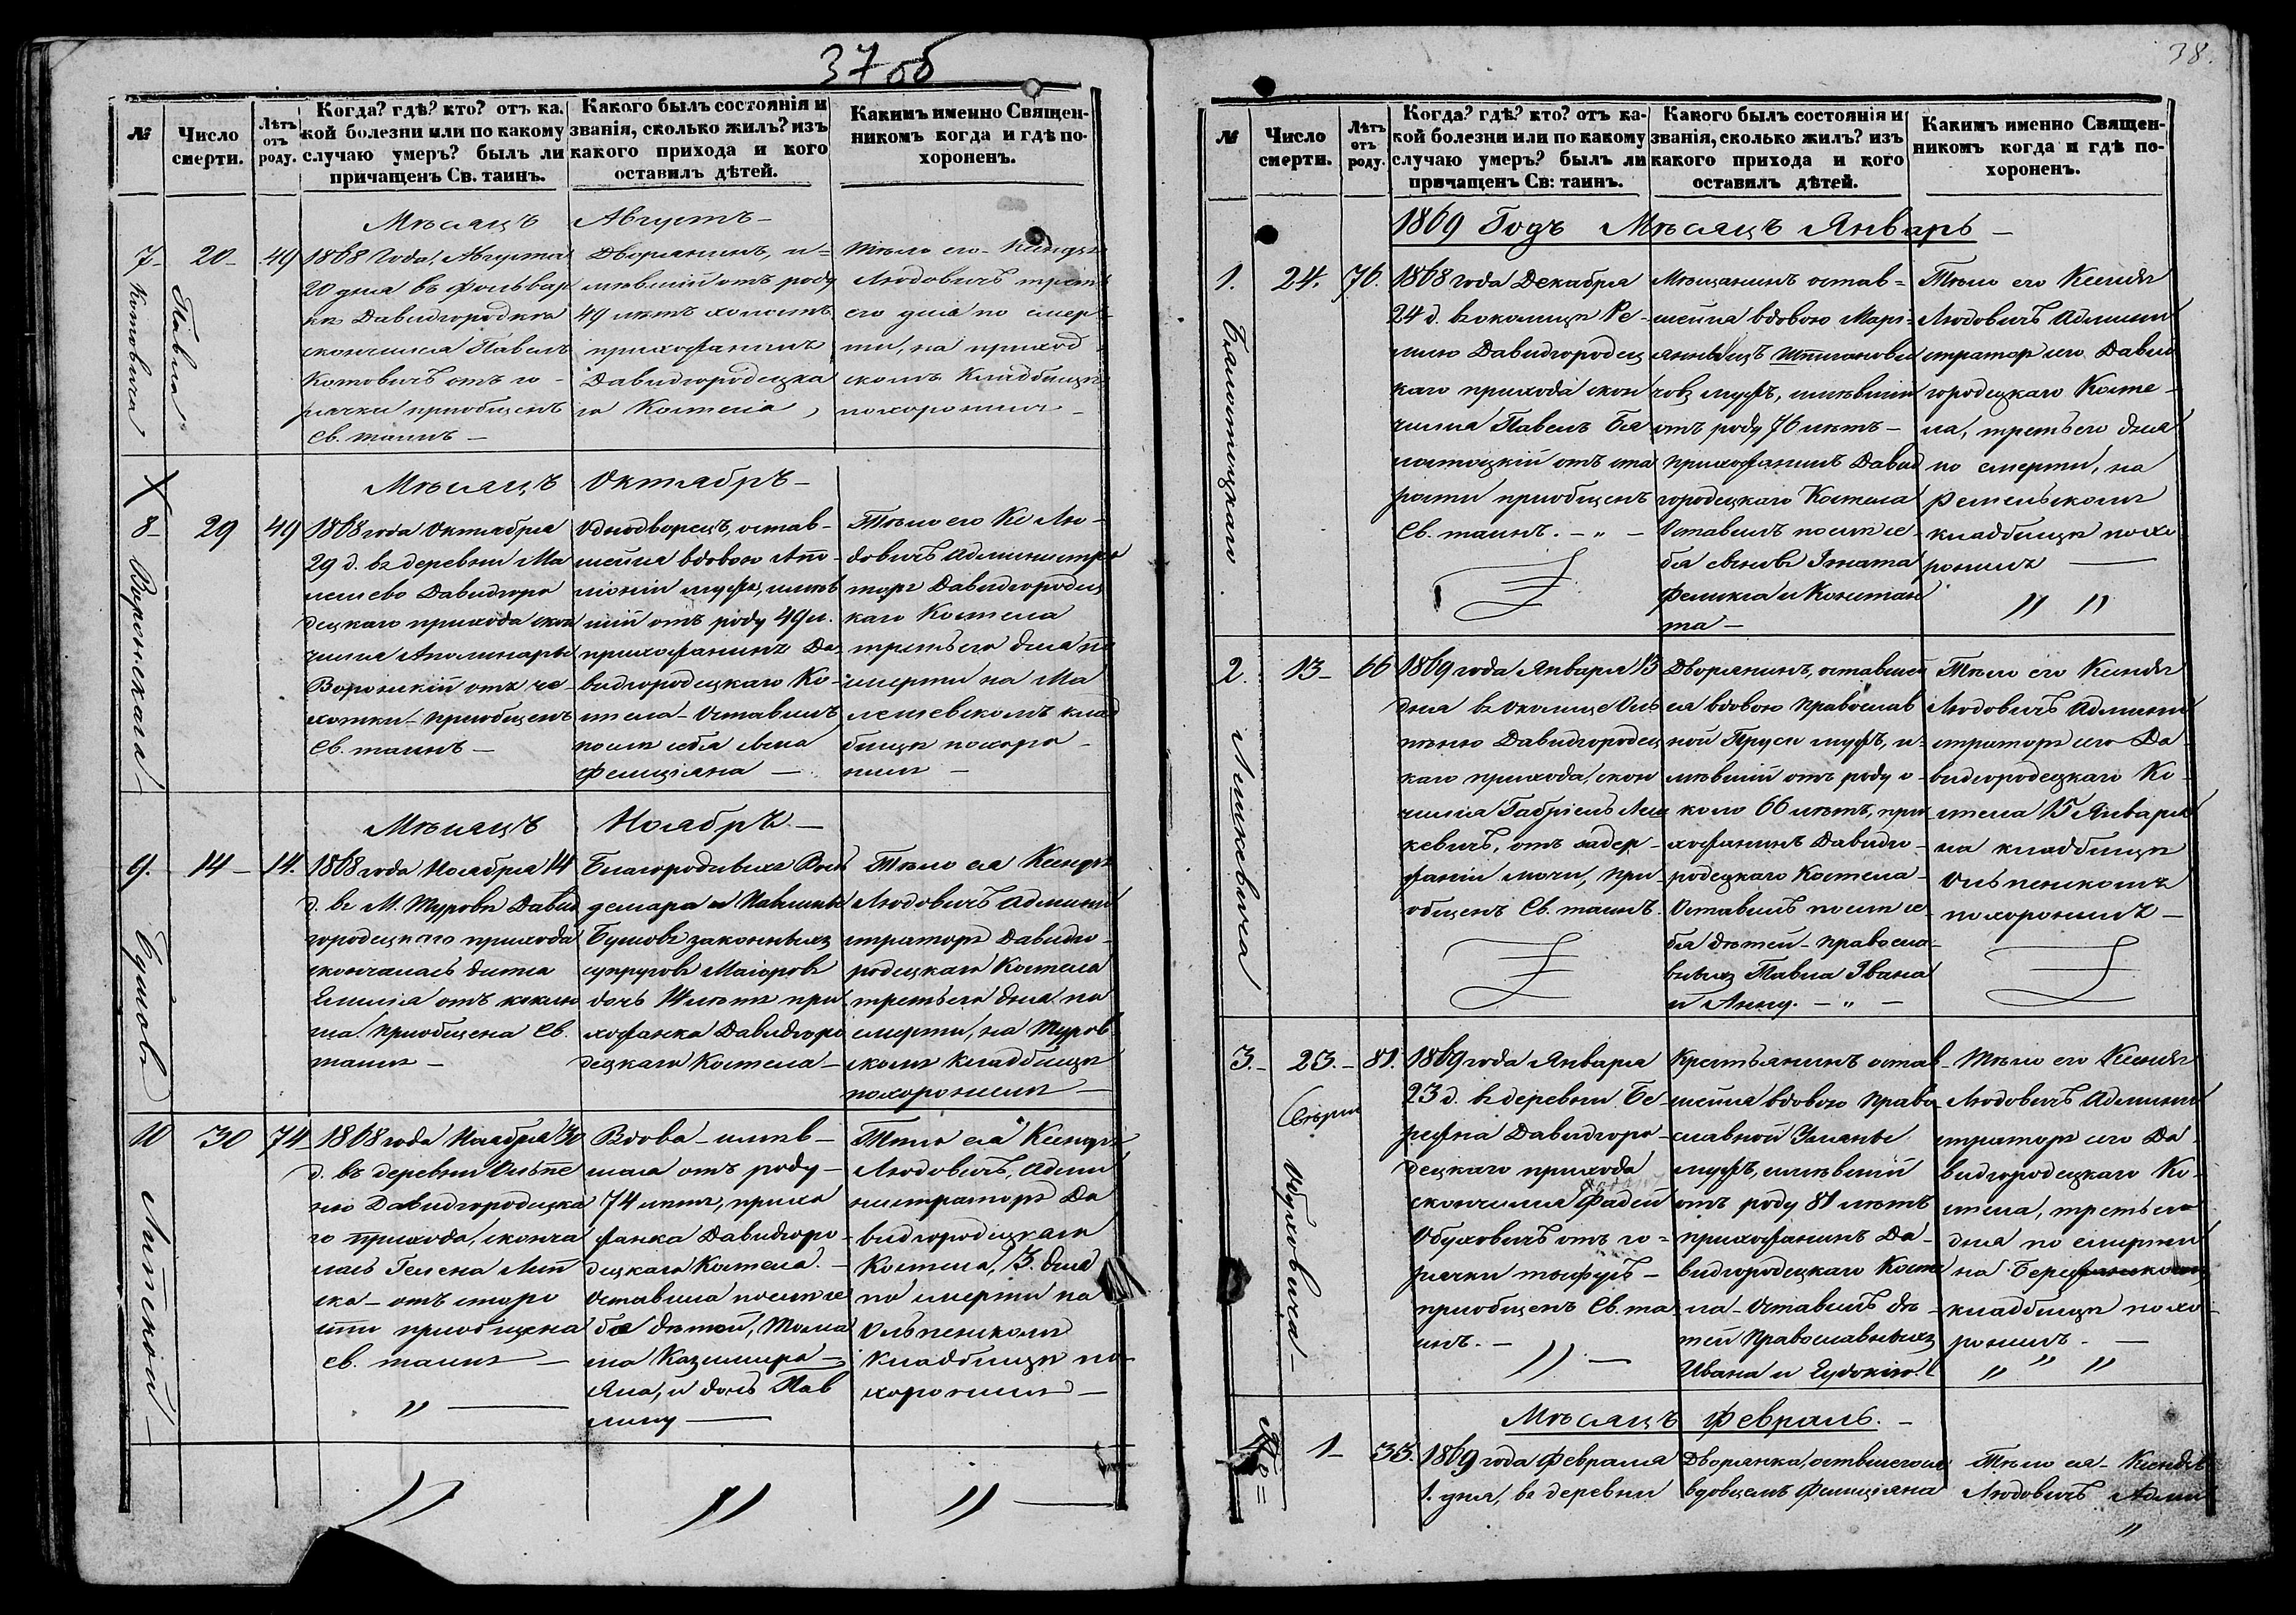 37 об
№
Число
смерти.
Лѣтъ
отъ
роду.
Когда? гдѣ? кто? отъ ка-
кой болезни или по какому
случаю умеръ? былъ ли
причащенъ Св. таинъ.
Какого былъ состоянія и
званія, сколько жилъ? изъ
какого прихода и кого
оставилъ дѣтей.
Какимъ именно Священ-
никомъ когда и гдѣ по-
хороненъ.
Мѣсяцъ Августъ —
7-
Павла
Котовича
20-
49
1868 Года Августа
20 дня въ фольвар
кѣ Давидгородкѣ
скончился Павелъ
Котовичъ отъ го-
рячки приобщенъ
Св. таинъ —
Дворянинъ, и-
мѣвшій отъ роду
49 лѣтъ холостъ
прихожанинъ
Давидгородецка
го Костела,
Тѣло его Ксендзъ
Людовичъ треть
его дня по смер-
ти, на приход
скомъ Кладбищѣ
похоронилъ -
Мѣсяцъ Октябръ —
8-
Воронскаго
29
49
1868 года Октября
29 д. въ деревни Ма
лешево Давидгоро
децкаго прихода скон
чился Аполинарій
Воронскій отъ че-
хотки - приобщенъ
Св. таинъ —
Однодворецъ, остав-
шейся вдовою Апо
лоніи мужъ, имѣв
шій отъ роду 49 л.
прихожанинъ Да-
видгородецкаго Ко-
стела - Оставилъ
послѣ себя сына
Фелиціяна —
Тѣло его Кс Лю-
довичъ Администра
торъ Давидгородец
каго Костела
третьего дня по
смерти на Ма
лешевскомъ клад
бищѣ похоро-
нилъ —
Мѣсяцъ Ноябръ. —
9.
Бушовъ
14 -
14.
1868 года Ноября 14
д. въ М. Туровѣ Давид
городецкаго прихода
скончалась дитя
Емилія отъ коклю
ша. приобщена Св.
таинъ —
Благородныхъ Вол
демара и Павлины
Бушовъ законныхъ
супруговъ Маіоровъ
дочь 14 лѣтъ при
хожанка Давидгоро
децкаго Костела —
Тѣло ея Ксендзъ
Людовичъ Админи
страторъ Давидго-
родецкаго Костела
третьего дня по
смерти, на Туров
скомъ Кладбищѣ
похоронилъ —
10
Липской —
30
74
1868 года Ноября 30
д. въ деревни Ольпе
но Давидгородецка
го прихода, сконча
лась Гелена Лип
ска - отъ старо
сти приобщена
св. таинъ —
〃 —
Вдова - имѣв-
шая отъ роду -
74 лѣтъ, прихо
жанка Давидгоро-
децкаго Костела. -
Оставила послѣ се
бя дѣтей, Тома
ша Казимира -
Яна, и дочь Пав
лину —
Тѣло ея Ксендзъ
Людовичъ, Адми
нистраторъ Да
видгородецкаго
Костела, 3. дня
по смерти на
Ольпенскомъ
Кладбищѣ по-
хоронилъ —
〃 〃 〃 —
38.
№
Число
смерти.
Лѣтъ
отъ
роду.
Когда? гдѣ? кто? отъ ка-
кой болезни или по какому
случаю умеръ? былъ ли
причащенъ Св: таинъ.
Какого былъ состоянія и
званія, сколько жилъ? изъ
какого прихода и кого
оставилъ дѣтей.
Какимъ именно Священ-
никомъ когда и гдѣ по-
хороненъ.
1869 Годъ Мѣсяцъ Январь —
1.
24.
76.
1868 года Декабря
24 д. въ околицѣ Ре-
млю Давидгородец
каго прихода скон
чился Павелъ Бя
лотоцкій отъ ста
рости приобщенъ
Св. таинъ. - 〃 -
Мѣщанинъ остав-
шейся вдовою Марі-
мужъ, имѣвшій
отъ роду 76 лѣтъ -
прихожанинъ Давид
городецкаго Костела
Оставилъ послѣ се-
бя сыновъ Игната
Феликса и Констан
та —
Тѣло его Ксендзъ
Людовичъ Админи
страторъ его Давид
городецкаго Косте-
ла, третьего дня
по смерти, на
кладбищѣ похо
ронилъ —
〃 〃
2.
13-
66
1869 года Января 13
дня въ Околице Оль
пѣно Давидгородец
каго прихода, скон
чился Габріель Лиш
кевичъ, отъ задер-
жанія мочи, при-
общенъ Св. таинъ.
Лишкевича
Дворянинъ, оставшей
ся вдовою Православ
ной Пруси мужъ, и-
мѣвшій отъ роду о-
коло 66 лѣтъ, при
хожанинъ Давидго-
родецкаго Костела -
Оставилъ послѣ се-
бя дѣтей - Правосла-
вныхъ Павла Ивана
и Анну. - 〃 -
Тѣло его Ксендзъ
Людовичъ Админи
страторъ его Да-
видгородецкаго Ко-
стела 15 Января
на кладбищѣ
Ольпенскомъ
похоронилъ —
3.-
23.-
81.
Обуховича —
1869 года Января
23 д. въ деревни Бе-
режна Давидгоро-
децкаго прихода
скончился Фадей
Обуховичъ отъ го-
рячки тыфусъ -
приобщенъ Св. та
инъ. -
〃 —
Крестьянинъ остав
шейся вдовою Право
славной Ульяны
мужъ, имѣвшій
отъ роду 81 лѣтъ
прихожанинъ Да-
видгородецкаго Косте
ла - Оставилъ дѣ-
тей Православныхъ
Ивана и Еудокію.
Тѣло его Ксендзъ
Людовичъ Админи
страторъ его Да-
видгородецкаго Ко-
стела, третьего
дня по смерти
на Бережанскомъ
кладбищѣ похо-
ронилъ. —
〃 〃 〃
Мѣсяцъ Февраль. —
1-
33.
1869 года Февраля
1. дня, въ деревни
Дворянка, оствшегося
вдовцемъ Фелиціяна
Тѣло ея - Ксендзъ
Людовичъ Адми
〃